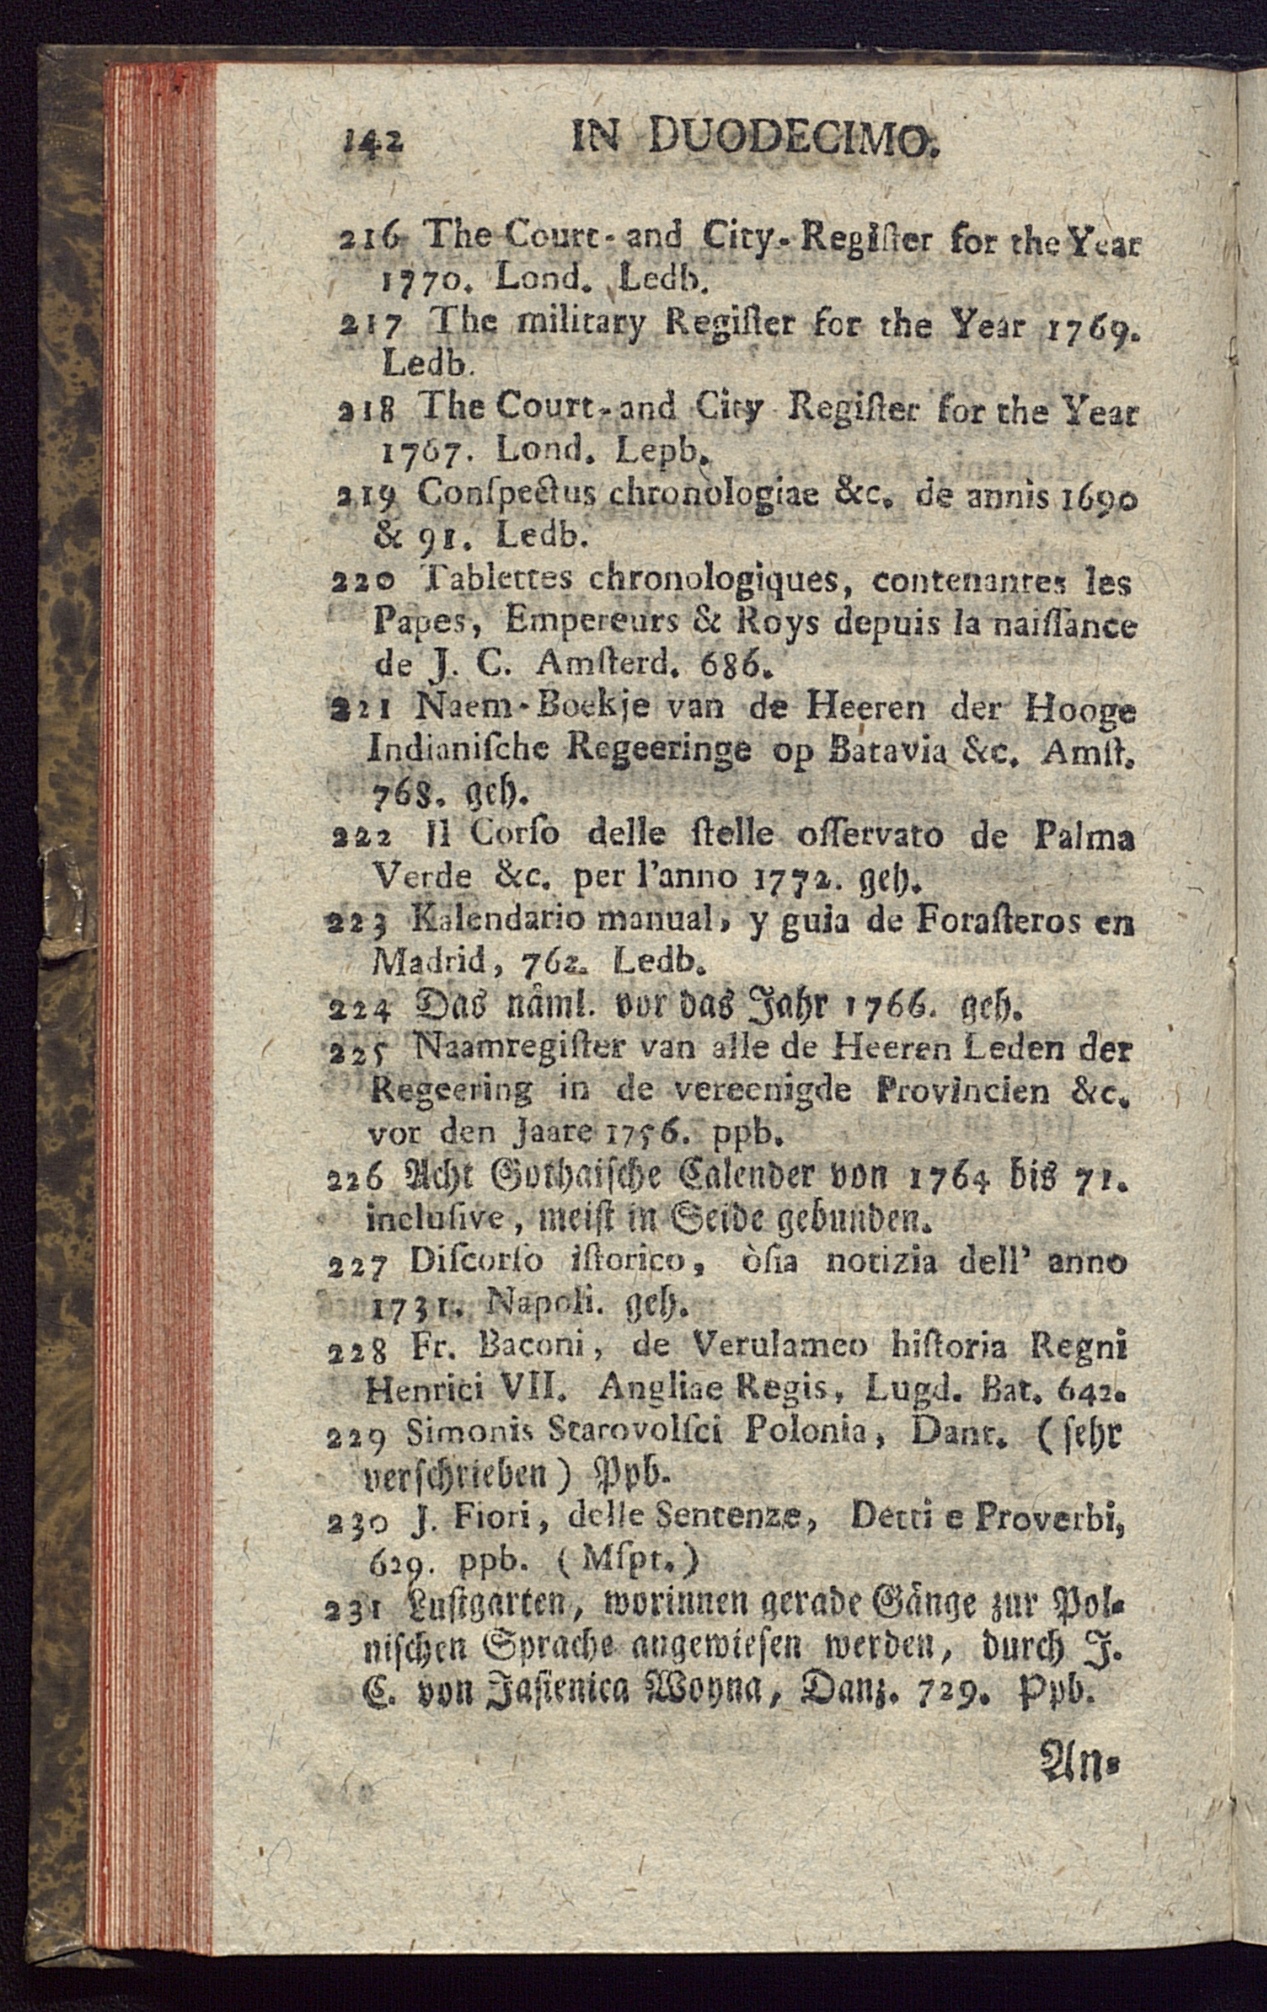 142 IN DUODECIMO.
216 The Court- and City-Regiſter for the Year
1770. Lond. Ledb.
217 The military Regiſter for the Year 1769.
Ledb.
218 The Court-and City Regiſter for the Year
1767. Lond. Lepb.
219 Conſpectus chronologiae &c. de annis 1690
& 91. Ledb.
220 Tablettes chronologiques, contenantes les
Papes, Empereurs & Roys depuis la naiſſance
de J. C. Amſterd. 686.
221 Naem-Boekje van de Heeren der Hooge
Indianiſche Regeeringe op Batavia &c. Amſt.
768. geh.
222 Il Corſo delle ſtelle oſſervato de Palma
Verde &c. per l'anno 1772. geh.
223 Kalendario manual, y guia de Foraſteros en
Madrid, 762. Ledb.
224 Das nåml. vor das Jahr 1766. geh.
225 Naamregiſter van alle de Heeren Leden der
Regeering in de vereenigde Provincien &c.
vor den Jaare 1756. ppb.
226 Acht Gothaiſche Calender von 1764 bis 71.
incluſive, meiſt in Seide gebunden.
227 Diſcorſo iſtorico, òſia notizia dell' anno
1731. Napoli. geh.
228 Fr. Baconi, de Verulameo hiſtoria Regni
Henrici VII. Angliae Regis, Lugd. Bat. 642.
229 Simonis Starovolſci Polonia, Dant. (ſehr
verſchrieben) Ppb.
230 J. Fiori, delle Sentenze, Detti e Proverbi,
629. ppb. (Mſpt.)
231 Luſtgarten, worinnen gerade Gånge zur Pol-
niſchen Sprache angewieſen werden, durch J.
C. von Jaſienica Woyna, Danz. 729. Ppb.
An-